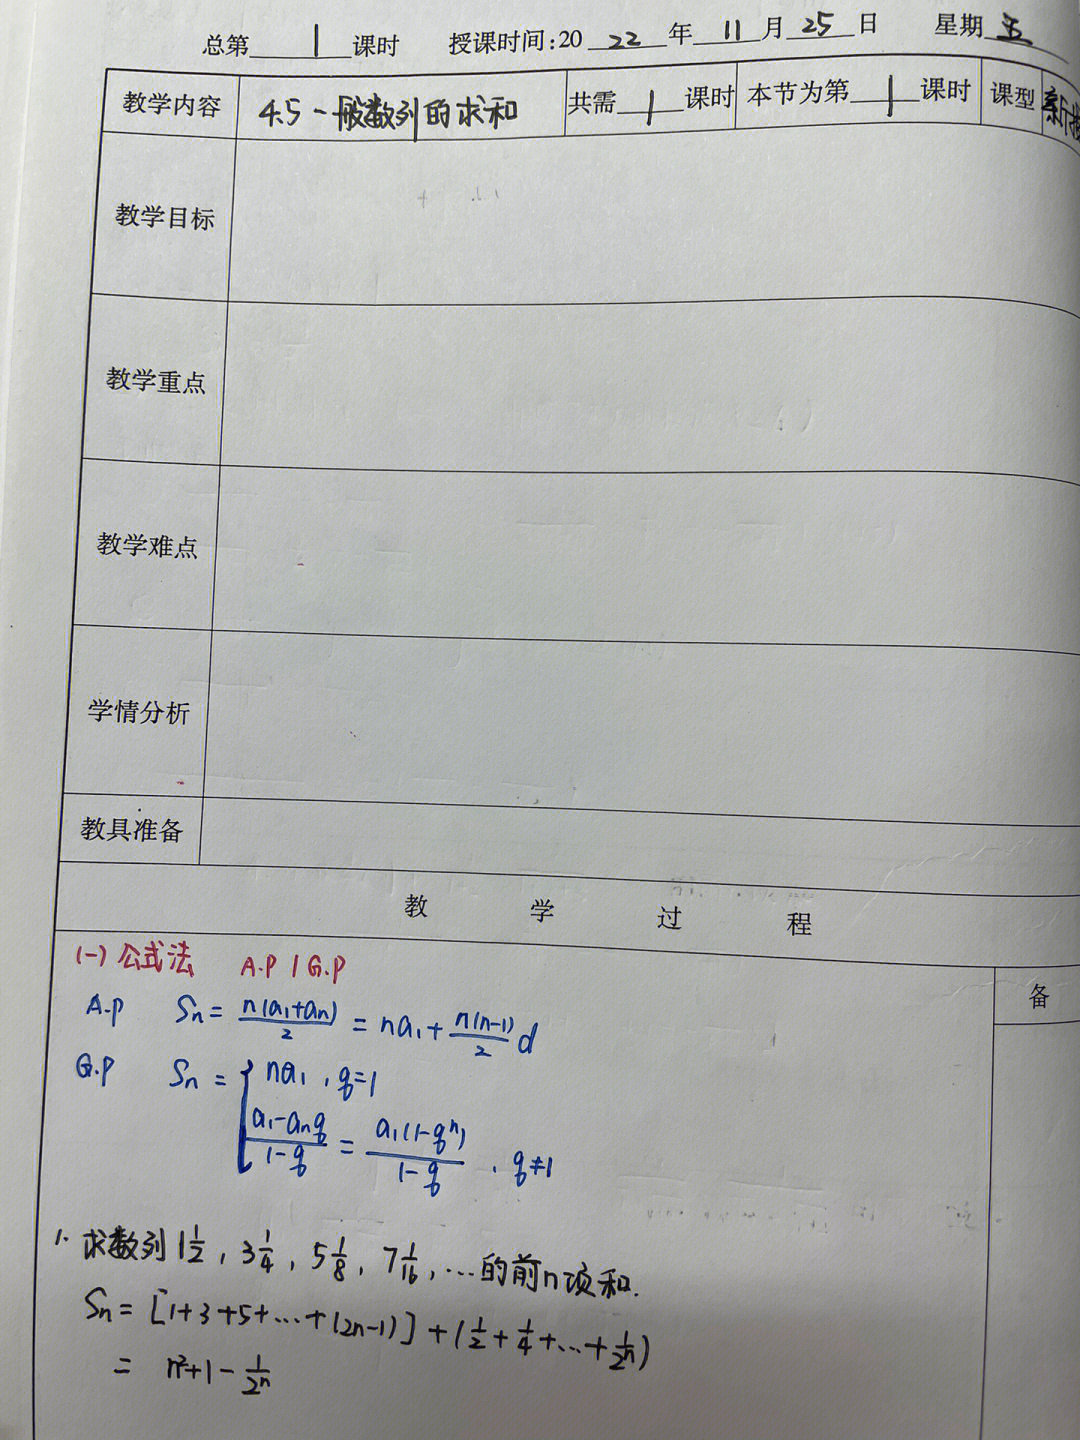 总第 1 课时 授课时间:20 22 年 11 月 25 日 星期 五
教学内容 4.5 一般数列的求和 共需 1 课时 本节为第 1 课时 课型 新授
教学目标
教学重点
教学难点
学情分析
教具准备
教 学 过 程
(一) 公式法 A.P / G.P
备
A.P Sn = n(a₁+an)/2 = na₁ + n(n-1)/2 d
G.P Sn = { na₁ , q=1
(a₁-anq)/(1-q) = a₁(1-qⁿ)/(1-q) , q≠1
1. 求数列 1 1/2 , 3 1/4 , 5 1/8 , 7 1/16 , …的前n项和.
Sn = [1+3+5+…+(2n-1)] + (1/2 + 1/4 +…+ 1/2ⁿ)
= n²+1- 1/2ⁿ